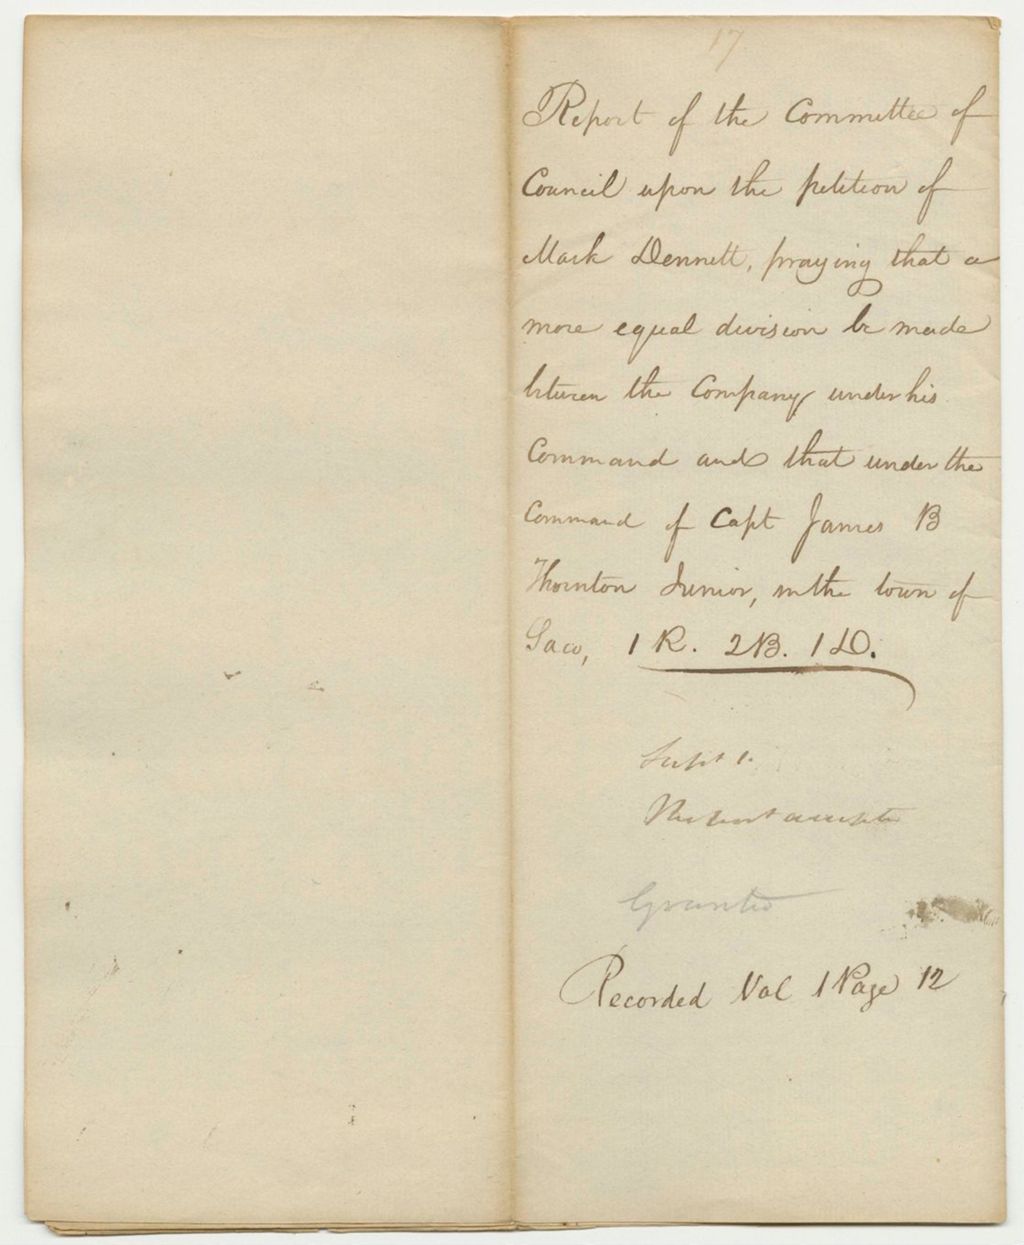 17
Report of the Committee of
Council upon the petition of
Mark Dennett, praying that a
more equal division be made
between the Company under his
Command and that under the
Command of Capt James B
Thornton Junior, in the town of
Saco, 1 R. 2 B. 1 D.
Sept 1.
Report accepted
Granted
Recorded Vol 1 Page 12